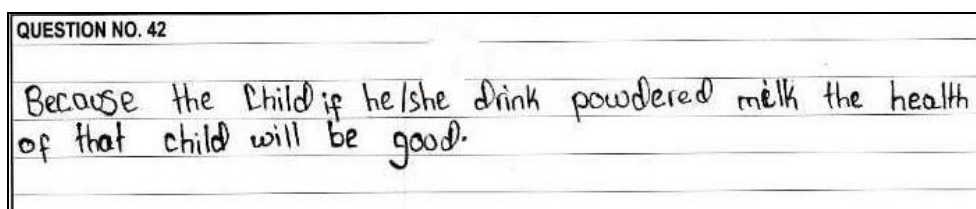 QUESTION NO. 42
Because the Child if he/she drink powdered milk the health
of that child will be good.